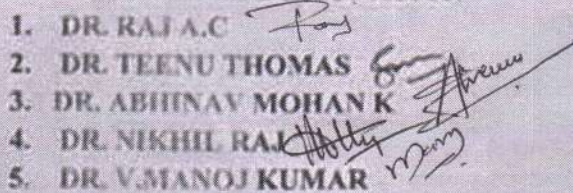 1. DR. RAJ A.C
2. DR. TEENU THOMAS
3. DR. ABHINAV MOHAN K
4. DR. NIKHIL RAJ
5. DR. V.MANOJ KUMAR